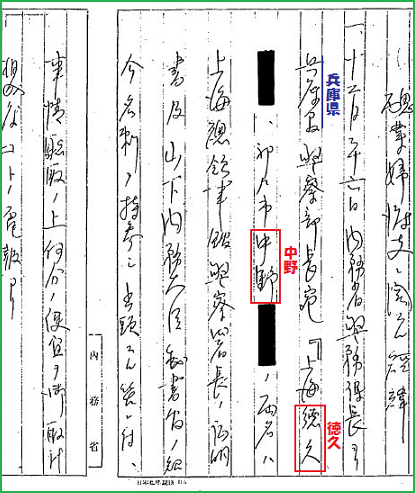 醜業婦渡支ニ関スル経緯
一、十二月二十六日内務省警務課長ヨリ
兵庫県
兵庫県警察部長宛『上海徳久
徳久
、神戸市中野
、ノ両名ハ
中野
上海総領事館警察署長ノ証明
書及山下内務大臣秘書官ノ紹
介名刺ヲ持参シ出頭スル筈ニ付、
内務省
事情聴取ノ上何分ノ便宜ヲ御取計
相成度コトノ電報アリ